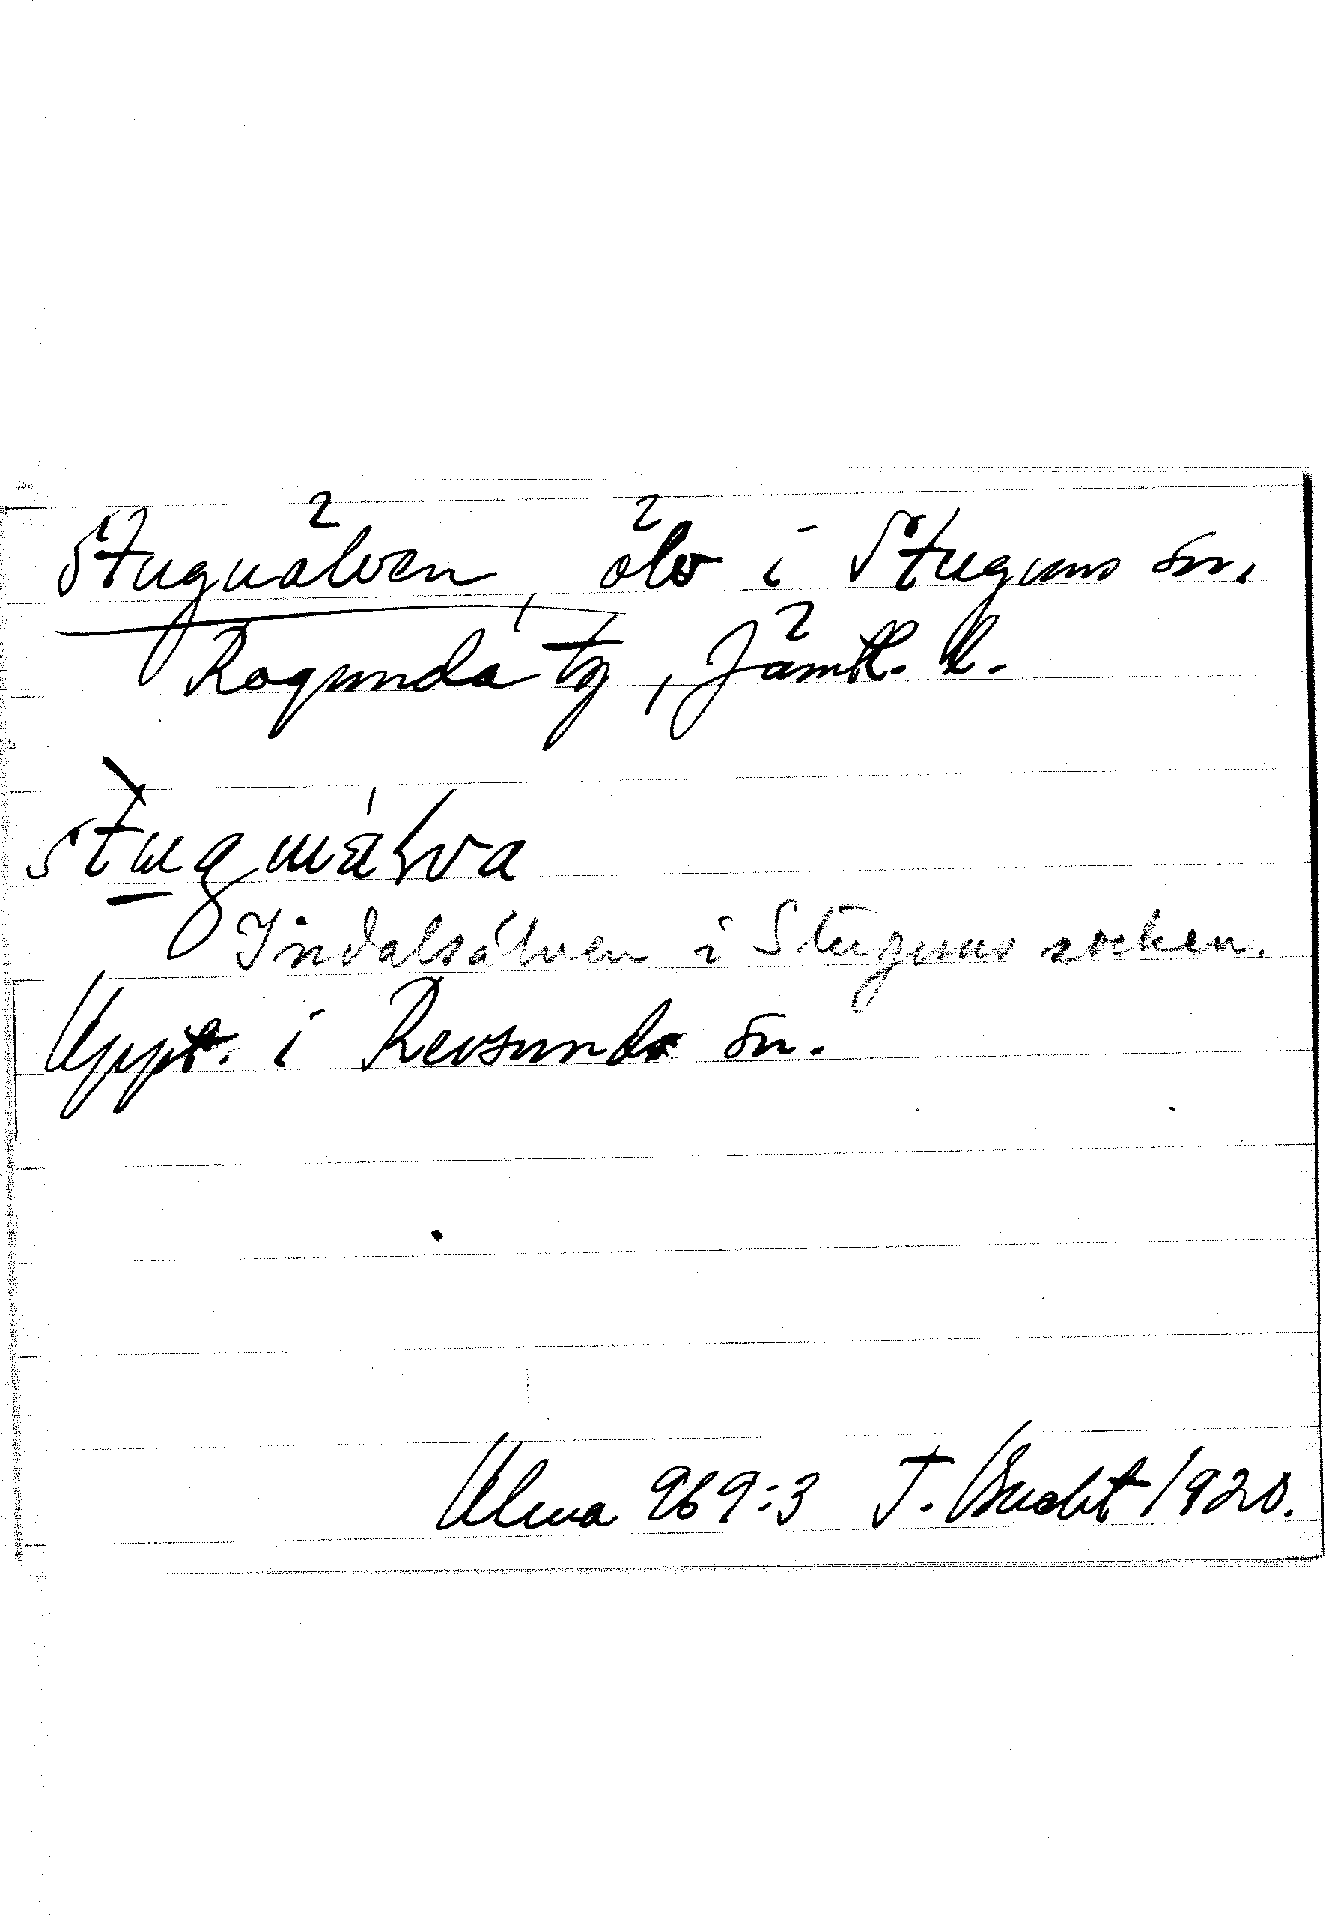 Stuguälven, älv i Stuguns sn,
Ragunda tg, Jämtl. l.
Indalsälven i Stuguns socken.
Uppt. i Revsunds sn.
Ulma 969:3 T. Bucht 1920.